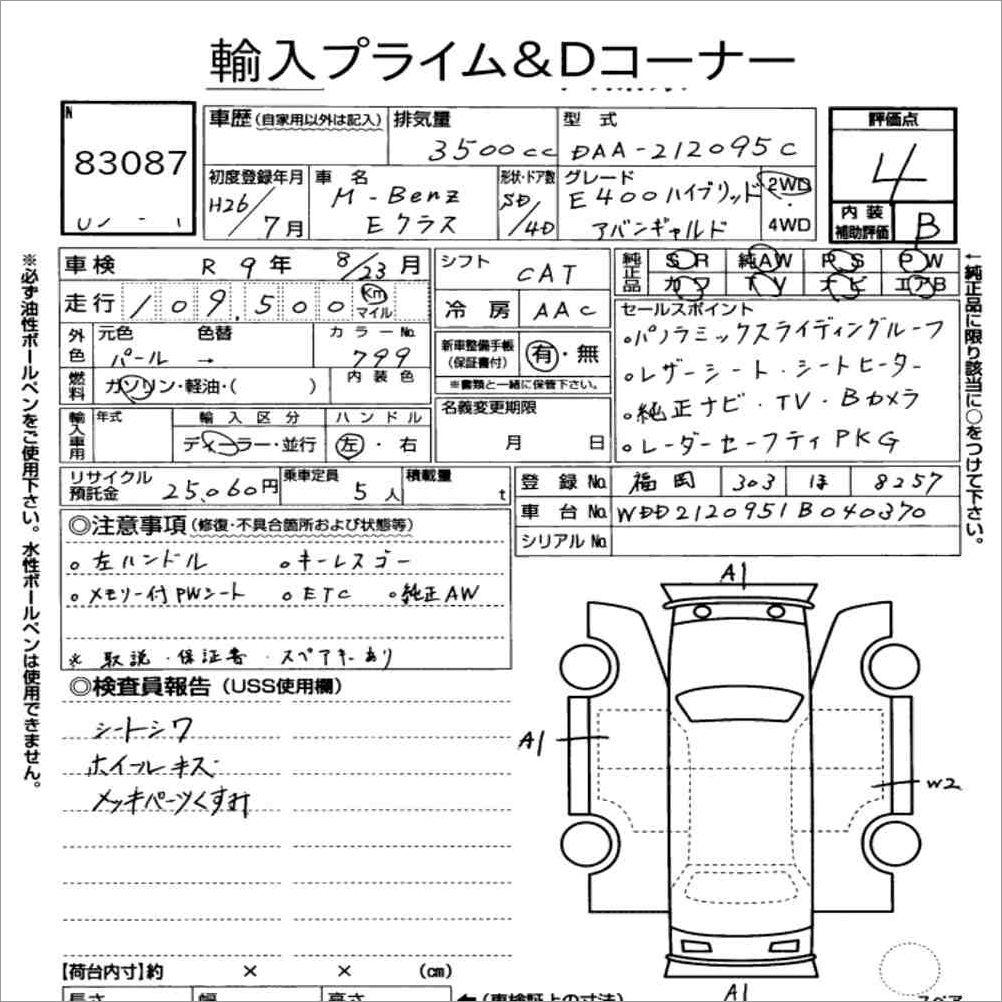 輸入プライム&Dコーナー
N
83087
車歴(自家用以外は記入)
排気量
3500cc
型式
DAA-212095C
評価点
4
初度登録年月
H26/7月
車名
M-Benz
Eクラス
形状・ドア数
SD/4D
グレード
E400ハイブリッド
アバンギャルド
2WD
・
4WD
内装
補助評価
B
車検
R9年 8/23月
シフト
CAT
純正品
SR 純AW PS PW
カワ TV ナビ エアB
走行
109,500
Km
マイル
冷房
AAC
セールスポイント
○パノラミックスライディングルーフ
○レザーシート・シートヒーター
○純正ナビ・TV・Bカメラ
○レーダーセーフティPKG
外色
元色 色替 カラーNo.
パール → 799
新車整備手帳
(保証書付)
有・無
※書類と一緒に保管下さい。
燃料
ガソリン・軽油・( )
内装色
輸入車用
年式
輸入区分
ディーラー・並行
ハンドル
左・右
名義変更期限
月 日
リサイクル
預託金
25,060円
乗車定員
5人
積載量
t
登録No.
福岡 303 ほ 8257
車台No.
WDD2120951B040370
シリアルNo.
◎注意事項(修復・不具合箇所および状態等)
○左ハンドル ○キーレスゴー
○メモリー付PWシート ○ETC ○純正AW
※ 取説・保証書・スペアキーあり
◎検査員報告(USS使用欄)
シートシワ
ホイールキズ
メッキパーツくすみ
A1
A1
W2
A1
【荷台内寸】約 × × (cm)
長さ 幅 高さ
←(車検証上の寸法)
スペア
※必ず油性ボールペンをご使用下さい。水性ボールペンは使用できません。
←純正品に限り該当に○をつけて下さい。